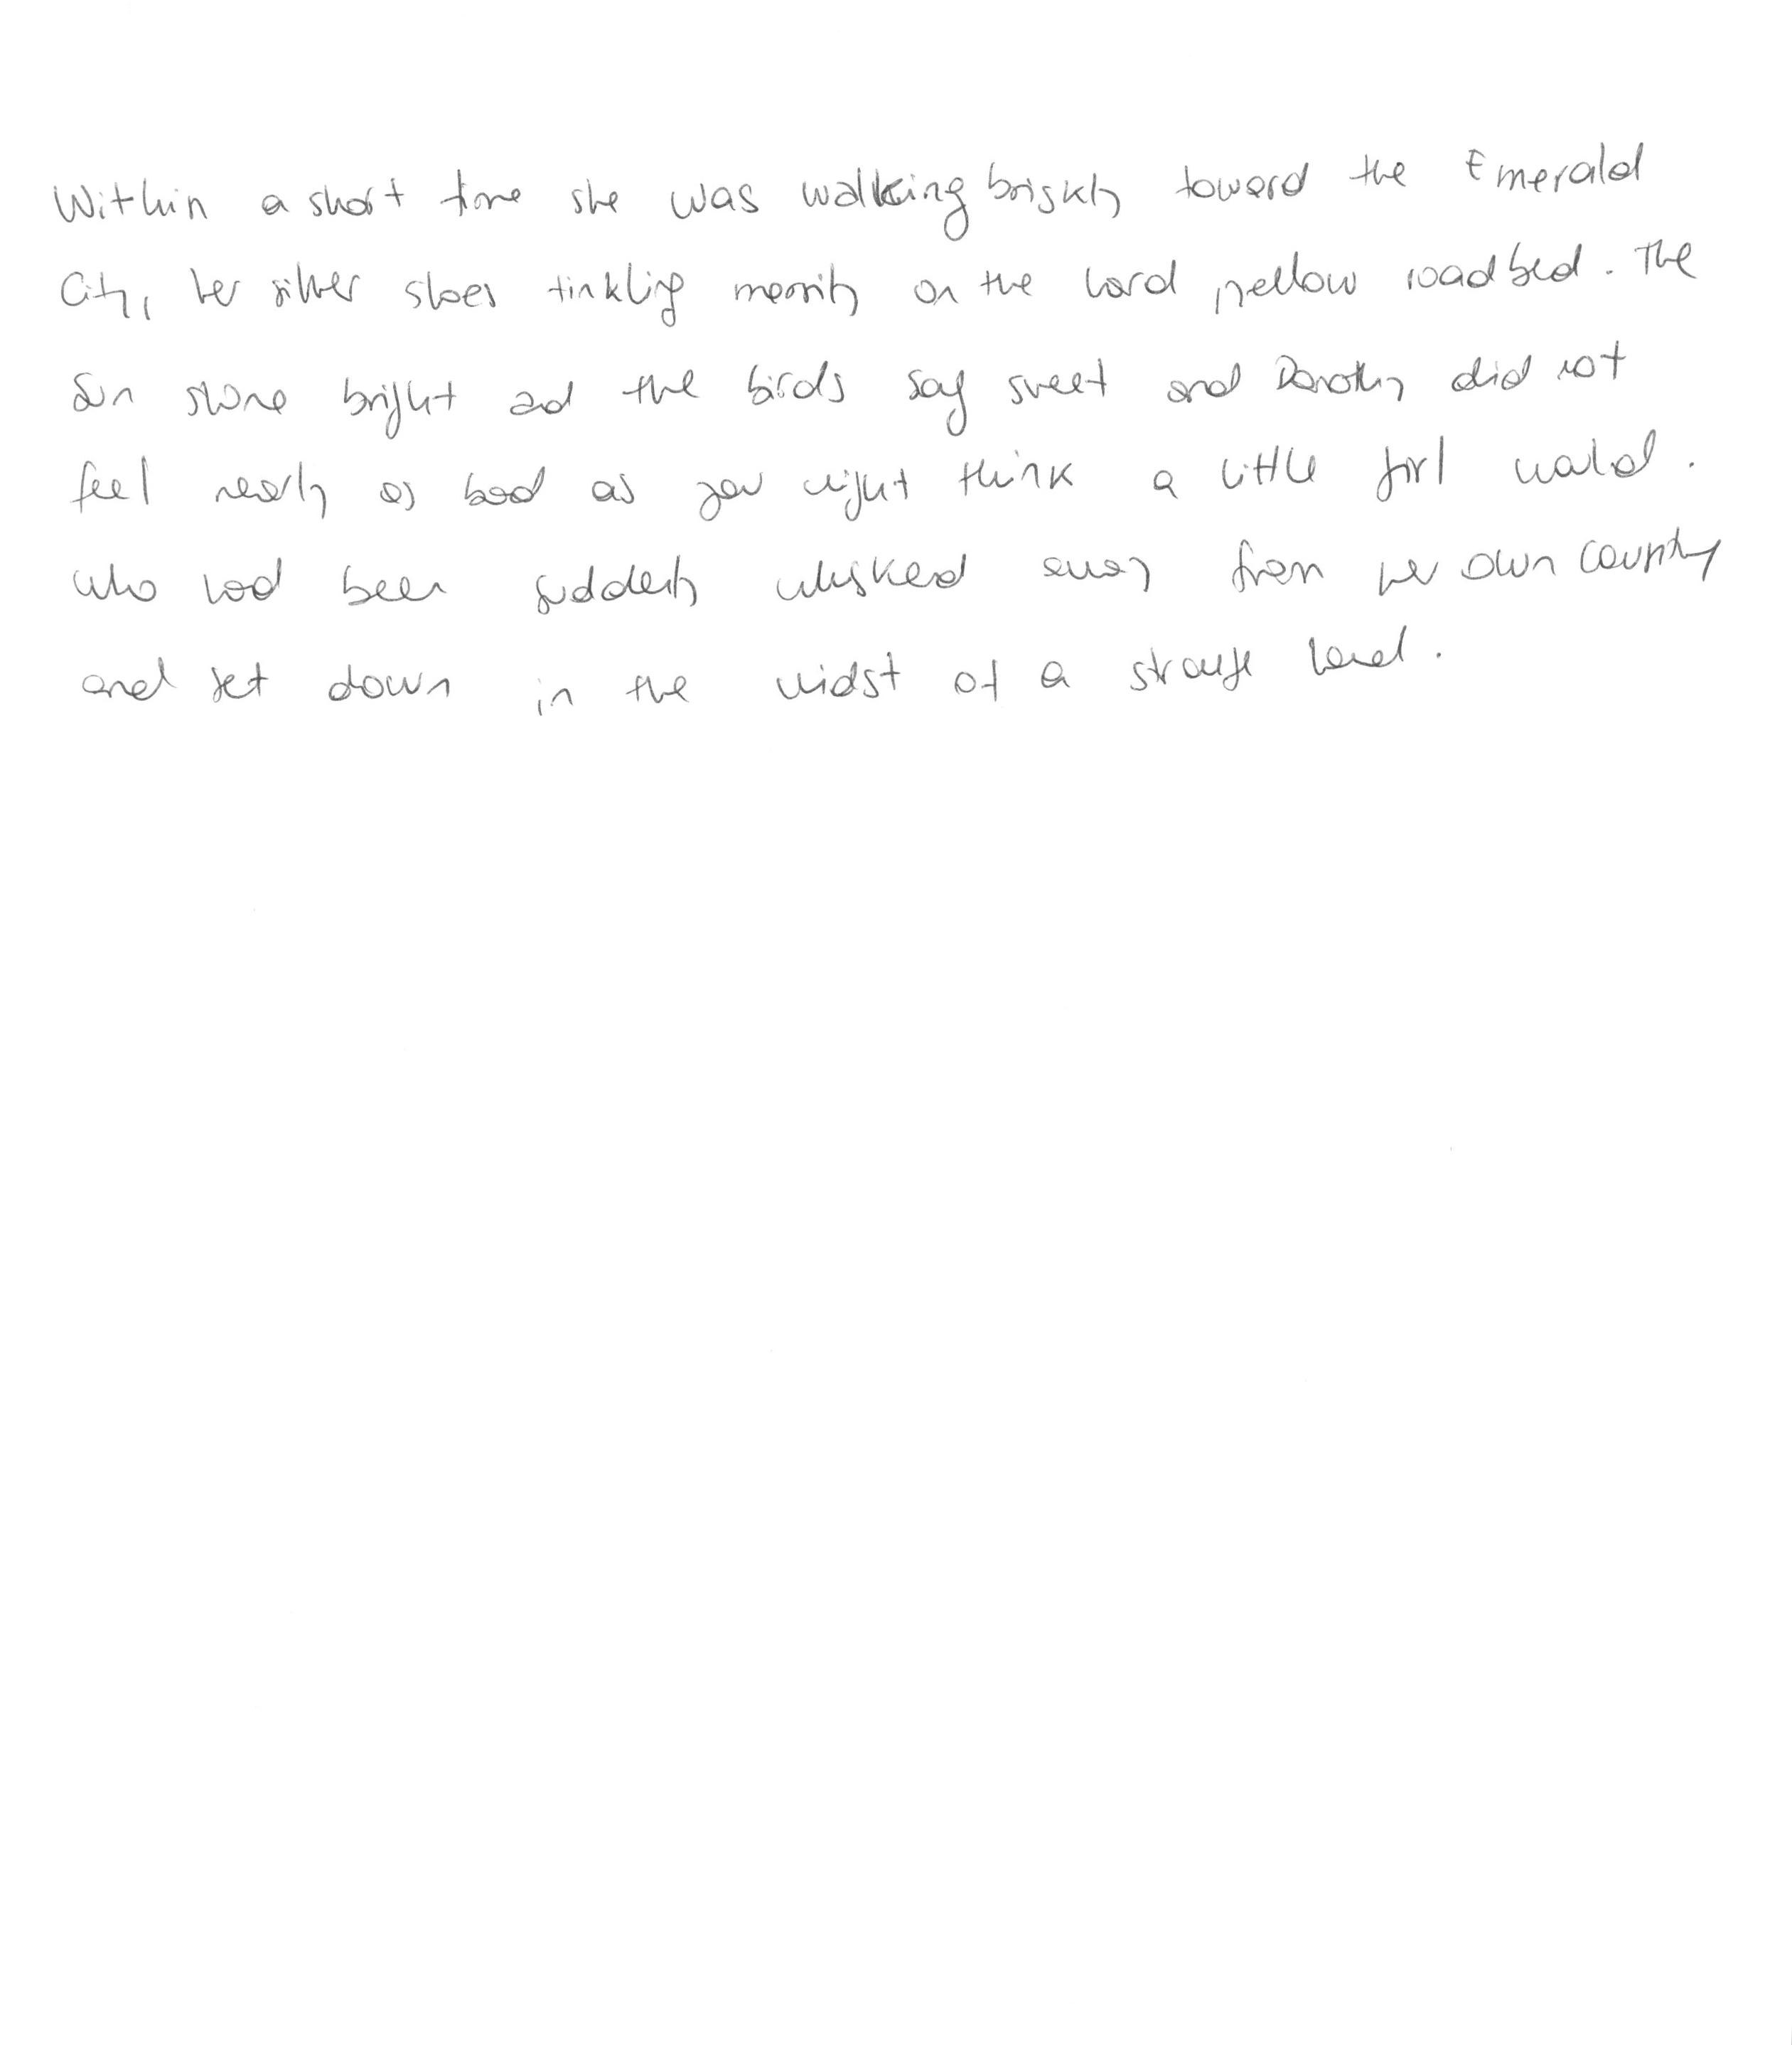 Within a short time she was walking briskly toward the Emerald
City, her silver shoes tinkling merrily on the hard yellow roadbed. The
sun shone bright and the birds sang sweet and Dorothy did not
feel nearly as bad as you might think a little girl would.
who had been suddenly whisked away from her own country
and set down in the midst of a strange land.